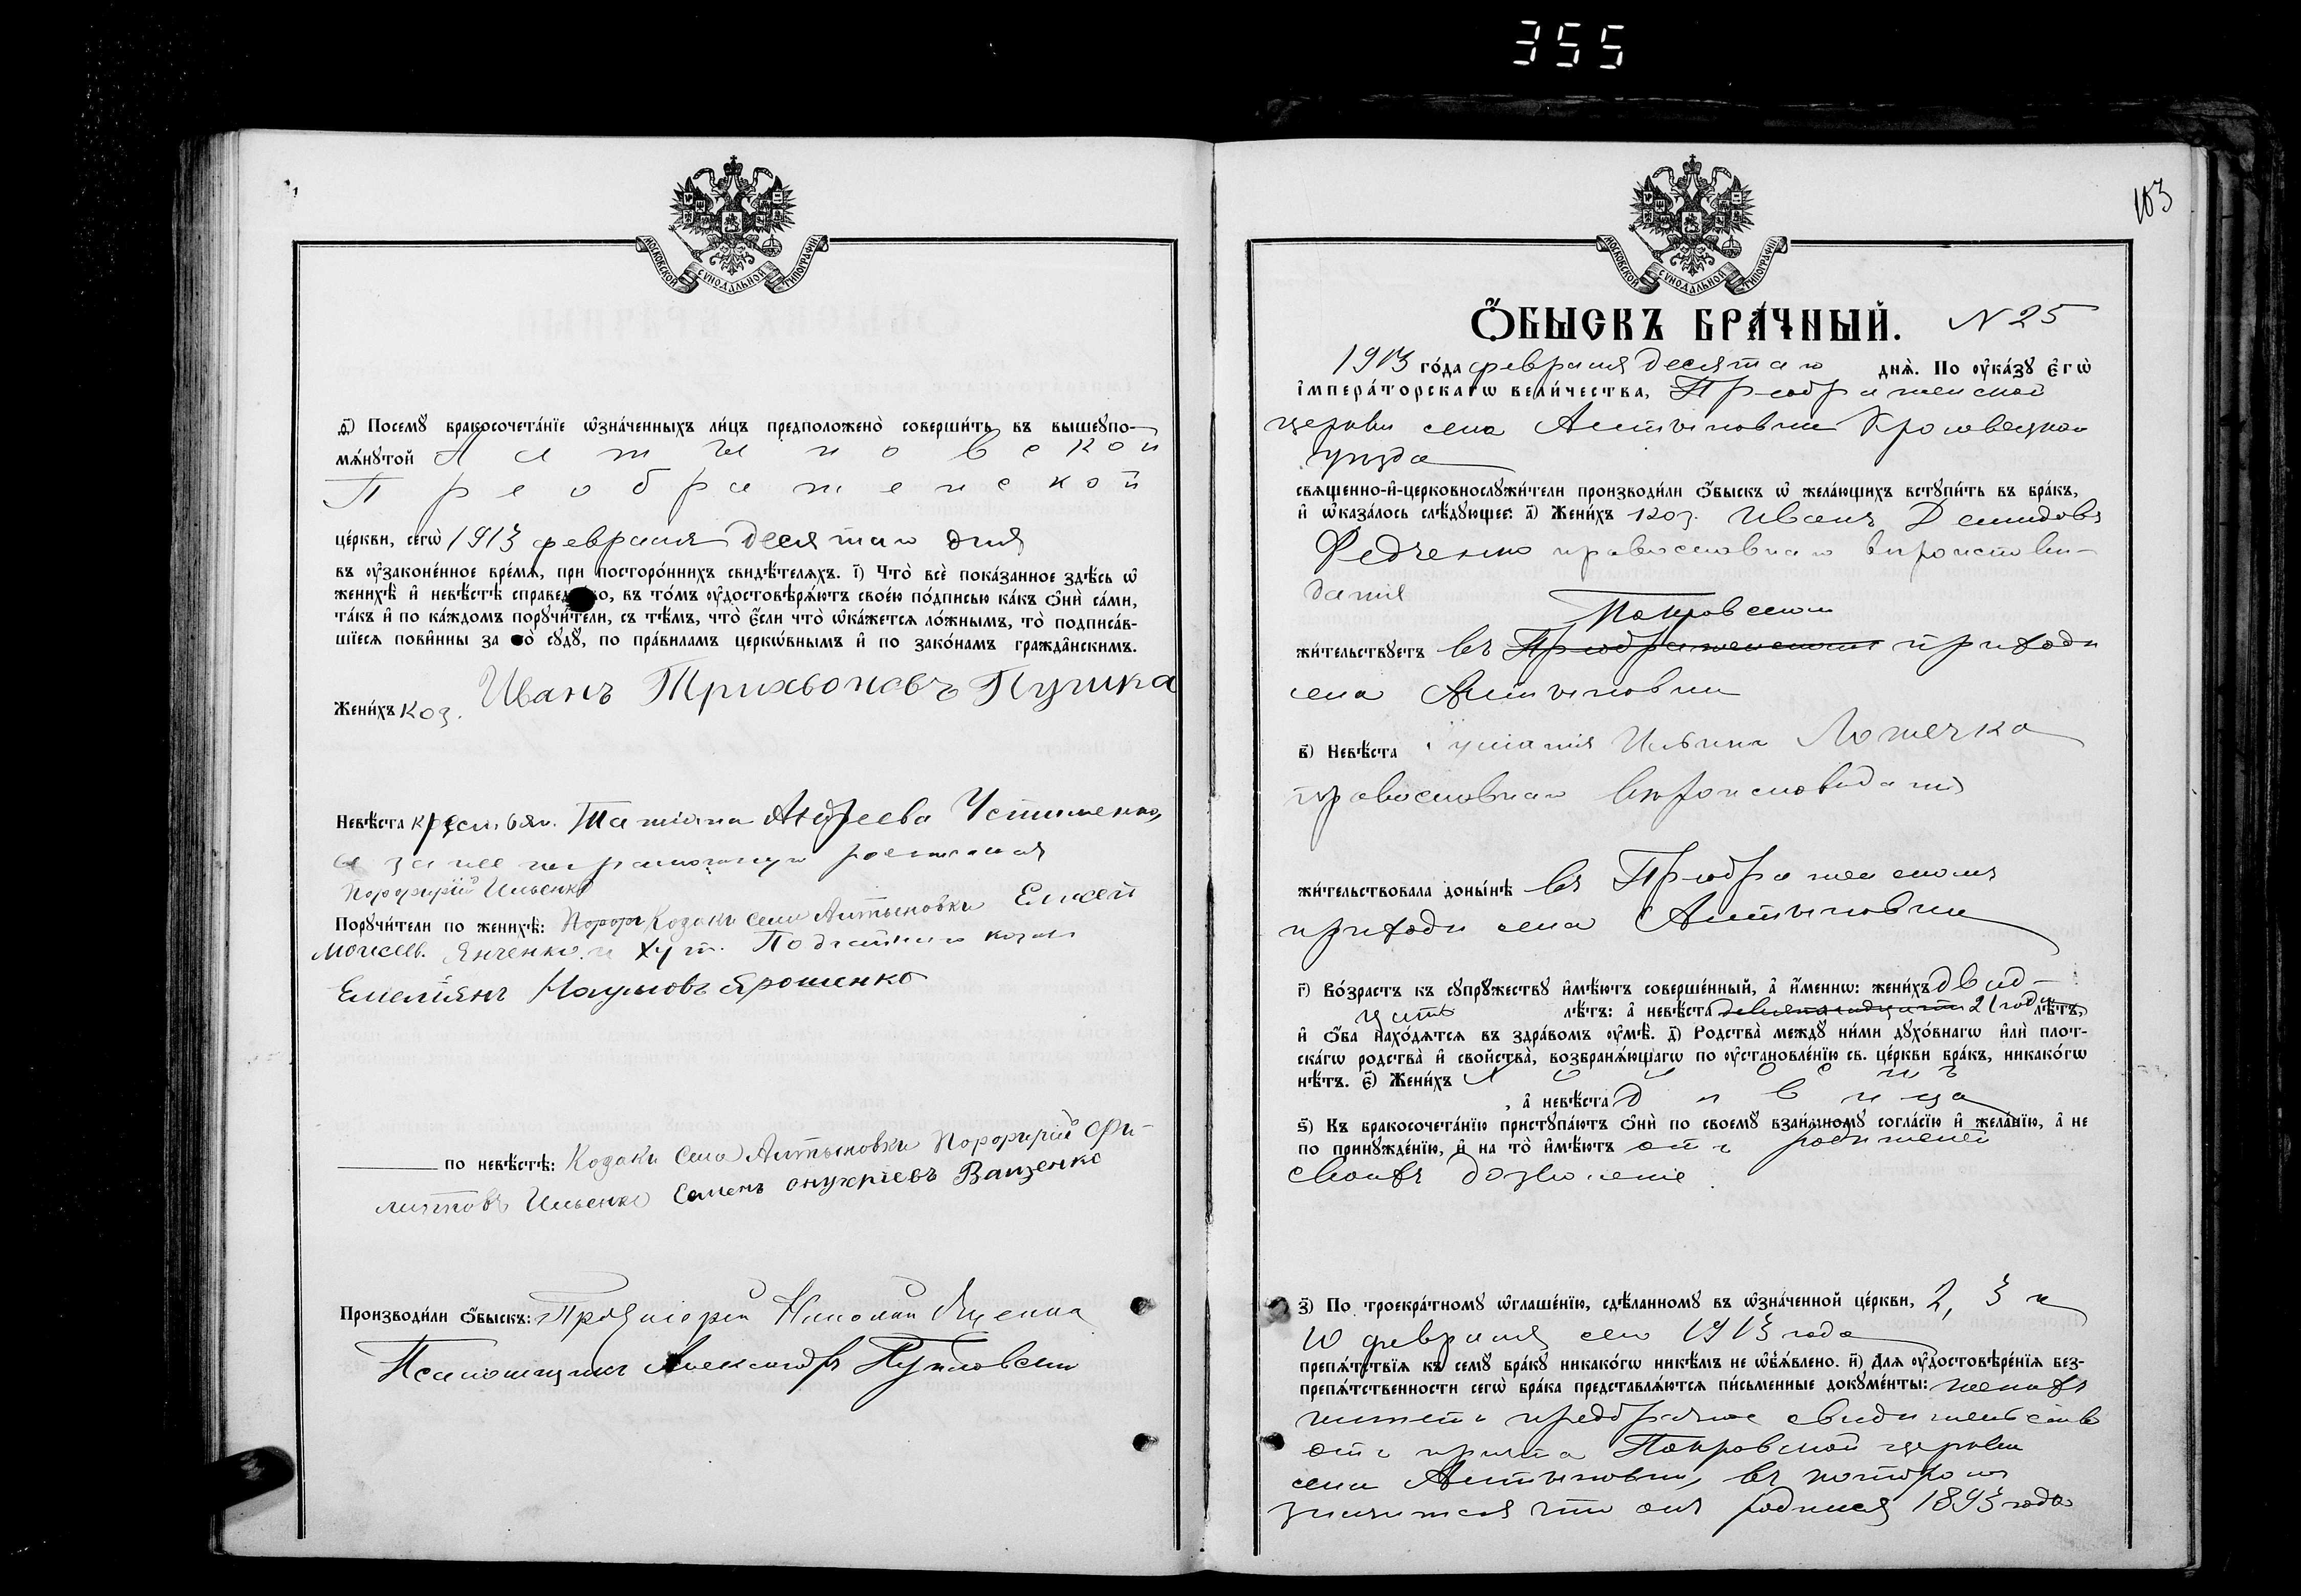 355
103
МОСКОВСКОЙ СѴНОДАЛЬНОЙ ТИПОГРАФІИ
ѳ҃) Посемꙋ̀ бракосочета́нїе ѡ҆зна́ченныхъ ли́цъ предположено̀ соверши́ть въ вышеꙋпо-
мѧ́нꙋтой Алтыновской
Преображенской
це́ркви, сегѡ̀ 1913 февраля десятаго дня
въ ᲂу҆законе́нное вре́мѧ, при посторо́ннихъ свидѣ́телѧхъ. і҃) Что̀ всѐ пока́занное здѣ́сь ѡ҆
женихѣ̀ и҆ невѣ́стѣ справед о, въ то́мъ ᲂу҆достовѣрѧ́ютъ свое́ю по́дписью ка́къ ѻ҆нѝ са́ми,
та́къ и҆ по ка́ждомъ порꙋчи́тели, съ тѣ́мъ, что̀ є҆́сли что̀ ѡ҆ка́жетсѧ ло́жнымъ, то̀ подписа́в-
шїесѧ пови́нны за то̀ сꙋдꙋ̀, по пра́виламъ церкѡ́внымъ и҆ по зако́намъ гражда́нскимъ.
Жени́хъ коз. Иванъ Трихвоновъ Пугика
Невѣ́ста крестьян. Татіана Андреева Устименко,
а за нее неграмотную росписался
Порфирій Ильенко
Порꙋчи́тели по женихѣ̀: Козаки села Алтыновки Елисей
Моисеев. Янченко и хут. Подлатнаго козак
Емеліянъ Наумовъ Ярошенко
по невѣ́стѣ: Козаки села Алтыновки Порфирій Фи-
липовъ Ильенко Семенъ Онуфріевъ Ващенко
Производи́ли ѻ҆́быскъ: Протоіерей Николай
Псаломщикъ Александръ
Ѻ҆́БЫСКЪ БРА́ЧНЫЙ. N 25
1913 го́да февраля десятаго днѧ̀. По ᲂу҆ка́зꙋ є҆гѡ̀
і҆мпера́торскагѡ вели́чества, Преображенской
церкви села Алтыновки Кролевецкаго
уезда
свѧще́нно-и҆-церковнослꙋжи́тели производи́ли ѻ҆́быскъ ѡ҆ жела́ющихъ встꙋпи́ть въ бра́къ,
и҆ ѡ҆каза́лось слѣ́дꙋющее: а҃) Жени́хъ коз. Иванъ Демидовъ
Федченко православнаго вѣроисповѣ-
данія
Покровском
жи́тельствꙋетъ въ Преображенском приходѣ
села Алтыновки
в҃) Невѣ́ста Ильина Ложечка
православнаго вѣроисповѣданія
жи́тельствовала доны́нѣ въ Преображенскомъ
приходѣ села Алтыновки
г҃) Во́зрастъ къ сꙋпрꙋ́жествꙋ и҆мѣ́ютъ соверше́нный, а҆ и҆́меннѡ: жени́хъ двад-
цать лѣ́тъ: а҆ невѣ́ста девятнадцати 21 год лѣ́тъ,
и҆ ѻ҆́ба нахо́дѧтсѧ въ здра́вомъ ᲂу҆мѣ̀. д҃) Родства̀ междꙋ̀ ни́ми дꙋхо́внагѡ и҆лѝ плот-
ска́гѡ родства̀ и҆ сво́йства, возбранѧ́ющагѡ по ᲂу҆становле́нїю св. це́ркви бра́къ, никако́гѡ
нѣ́тъ. є҃) Жени́хъ холостъ
, а҆ невѣ́ста дѣвица
ѕ҃) Къ бракосочета́нїю пристꙋпа́ютъ ѻ҆нѝ по своемꙋ̀ взаи́мномꙋ согла́сїю и҆ жела́нїю, а҆ не
по принꙋжде́нїю, и҆ на то̀ и҆мѣ́ютъ отъ родителей
своихъ дозволеніе.
з҃) По троекра́тномꙋ ѡ҆глаше́нїю, сдѣ́ланномꙋ въ ѡ҆зна́ченной це́ркви, 2, 3 и
10 февраля сего 1913 года
препѧ́тствїѧ къ семꙋ̀ бра́кꙋ никако́гѡ никѣ́мъ не ѡ҆б̾ѧ́влено. и҃) Длѧ ᲂу҆достовѣре́нїѧ без-
препѧ́тственности сегѡ̀ бра́ка представлѧ́ютсѧ пи́сьменные докꙋме́нты: женихъ
имѣетъ предбрачное свидѣтельство
отъ причта Покровской церкви
села Алтыновки, въ котором
значится что онъ родился 1893 года